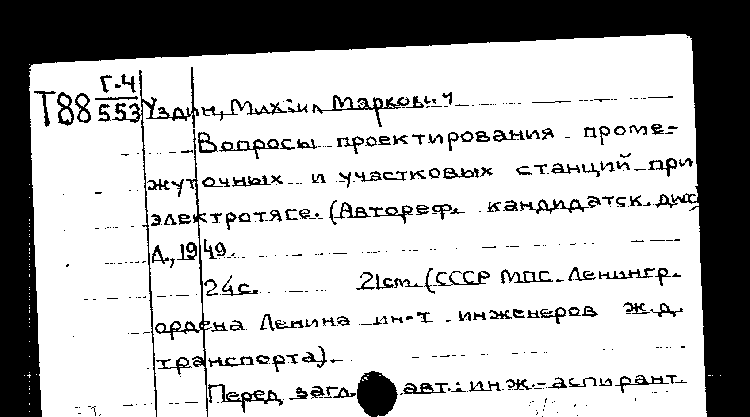 Т88 Г-4
553 Уздин, Михаил Маркович
Вопросы проектирования проме-
жуточных и участковых станций при
электротяге. (Автореф. кандидатск. дисс)
Л., 1949.
24с. 21см. (СССР МПС. Ленингр.
ордена Ленина ин-т инженеров ж.д.
транспорта).
Перед загл. авт.: инж.-аспирант